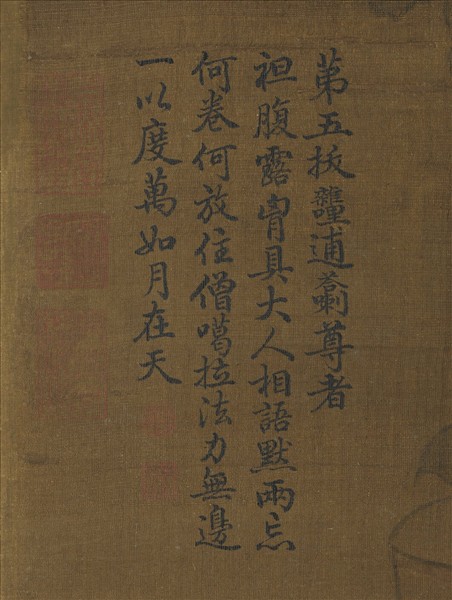 第五拔雜哩逋荅喇尊者
袒腹露胷具大人相語默兩忘
何卷何放住僧噶拉法力無邊
一以度萬如月在天